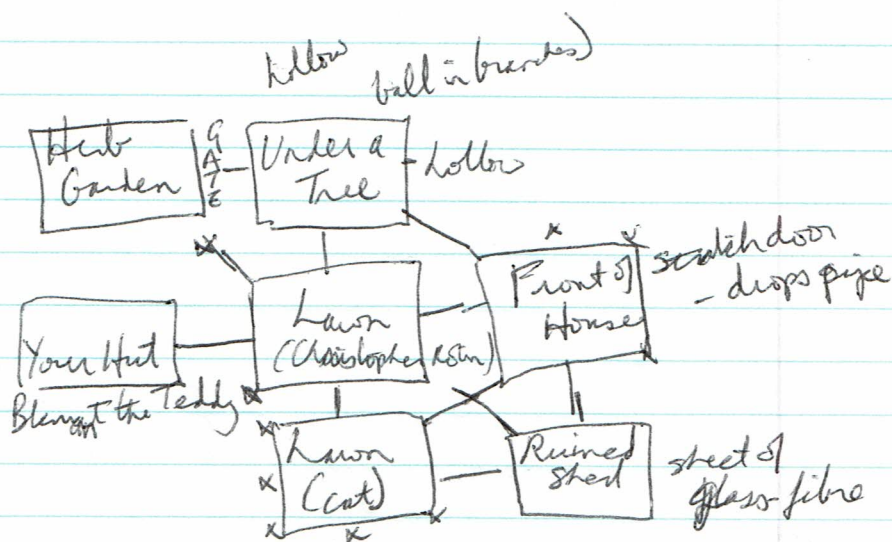 hollow
ball in branches)
Herb
Garden
GATE
Under a
Tree
hollow
Front of
House
scratch door
- drops pipe
Lawn
(Christopher Robin)
Your Hut
the Teddy
Lawn
(cat)
Ruined
Shed
sheet of
glass-fibre